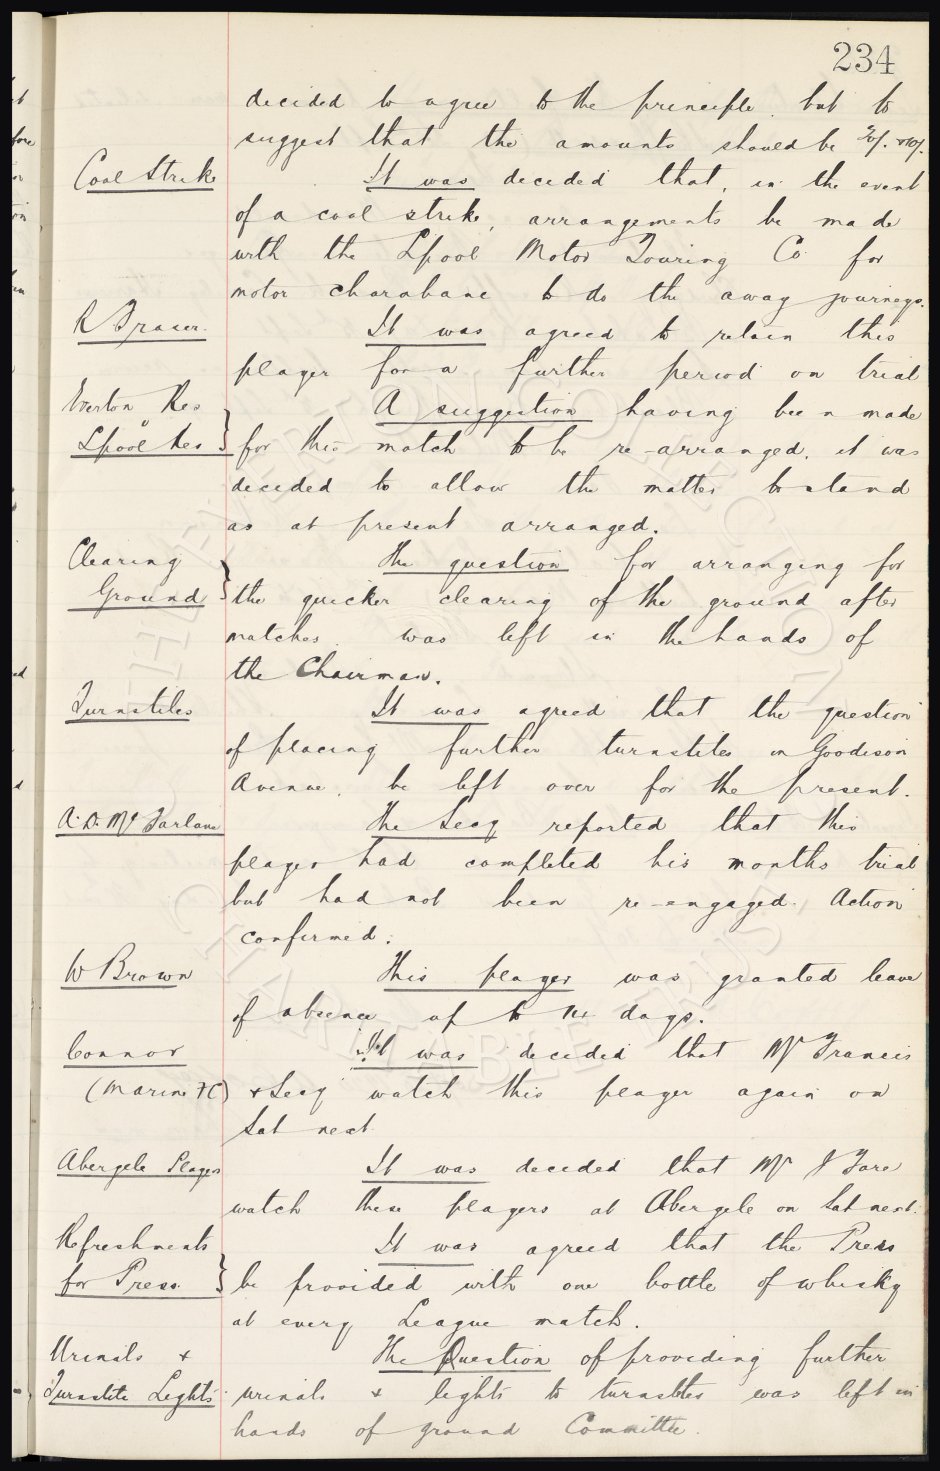 234
decided to agree to the principle but to
suggest that the amounts should be
Coal Strike
It was decided that, in the event
of a coal strike, arrangements be made
with the Lpool Motor Touring Co for
motor charabanc to do the away journeys.
R Fraser.
It was agreed to retain this
player for a further period on trial
Everton Res
v
Lpool Res
A suggestion having been made
for this match to be re-arranged, it was
decided to allow the matter to stand
as at present arranged.
Clearing
Ground
The question for arranging for
the quicker clearing of the ground after
matches was left in the hands of
the Chairman.
Turnstiles
It was agreed that the question
of placing further turnstiles in Goodison
Avenue, be left over for the present.
A. D. McFarlane
The Secy reported that this
player had completed his months trial
but had not been re-engaged. Action
confirmed.
W Brown
This player was granted leave
of absence up to days.
Connor
(Marine FC)
It was decided that Mr Francis
& Secy watch this player again on
Sat next
Abergele Players
It was decided that Mr J Fare
watch these players at Abergele on Sat next.
Refreshments
for Press
It was agreed that the Press
be provided with one bottle of whisky
at every League match.
Urinals &
Turnstile Lights
The Question of providing further
urinals & lights to turnstiles was left in
hands of ground Committee.